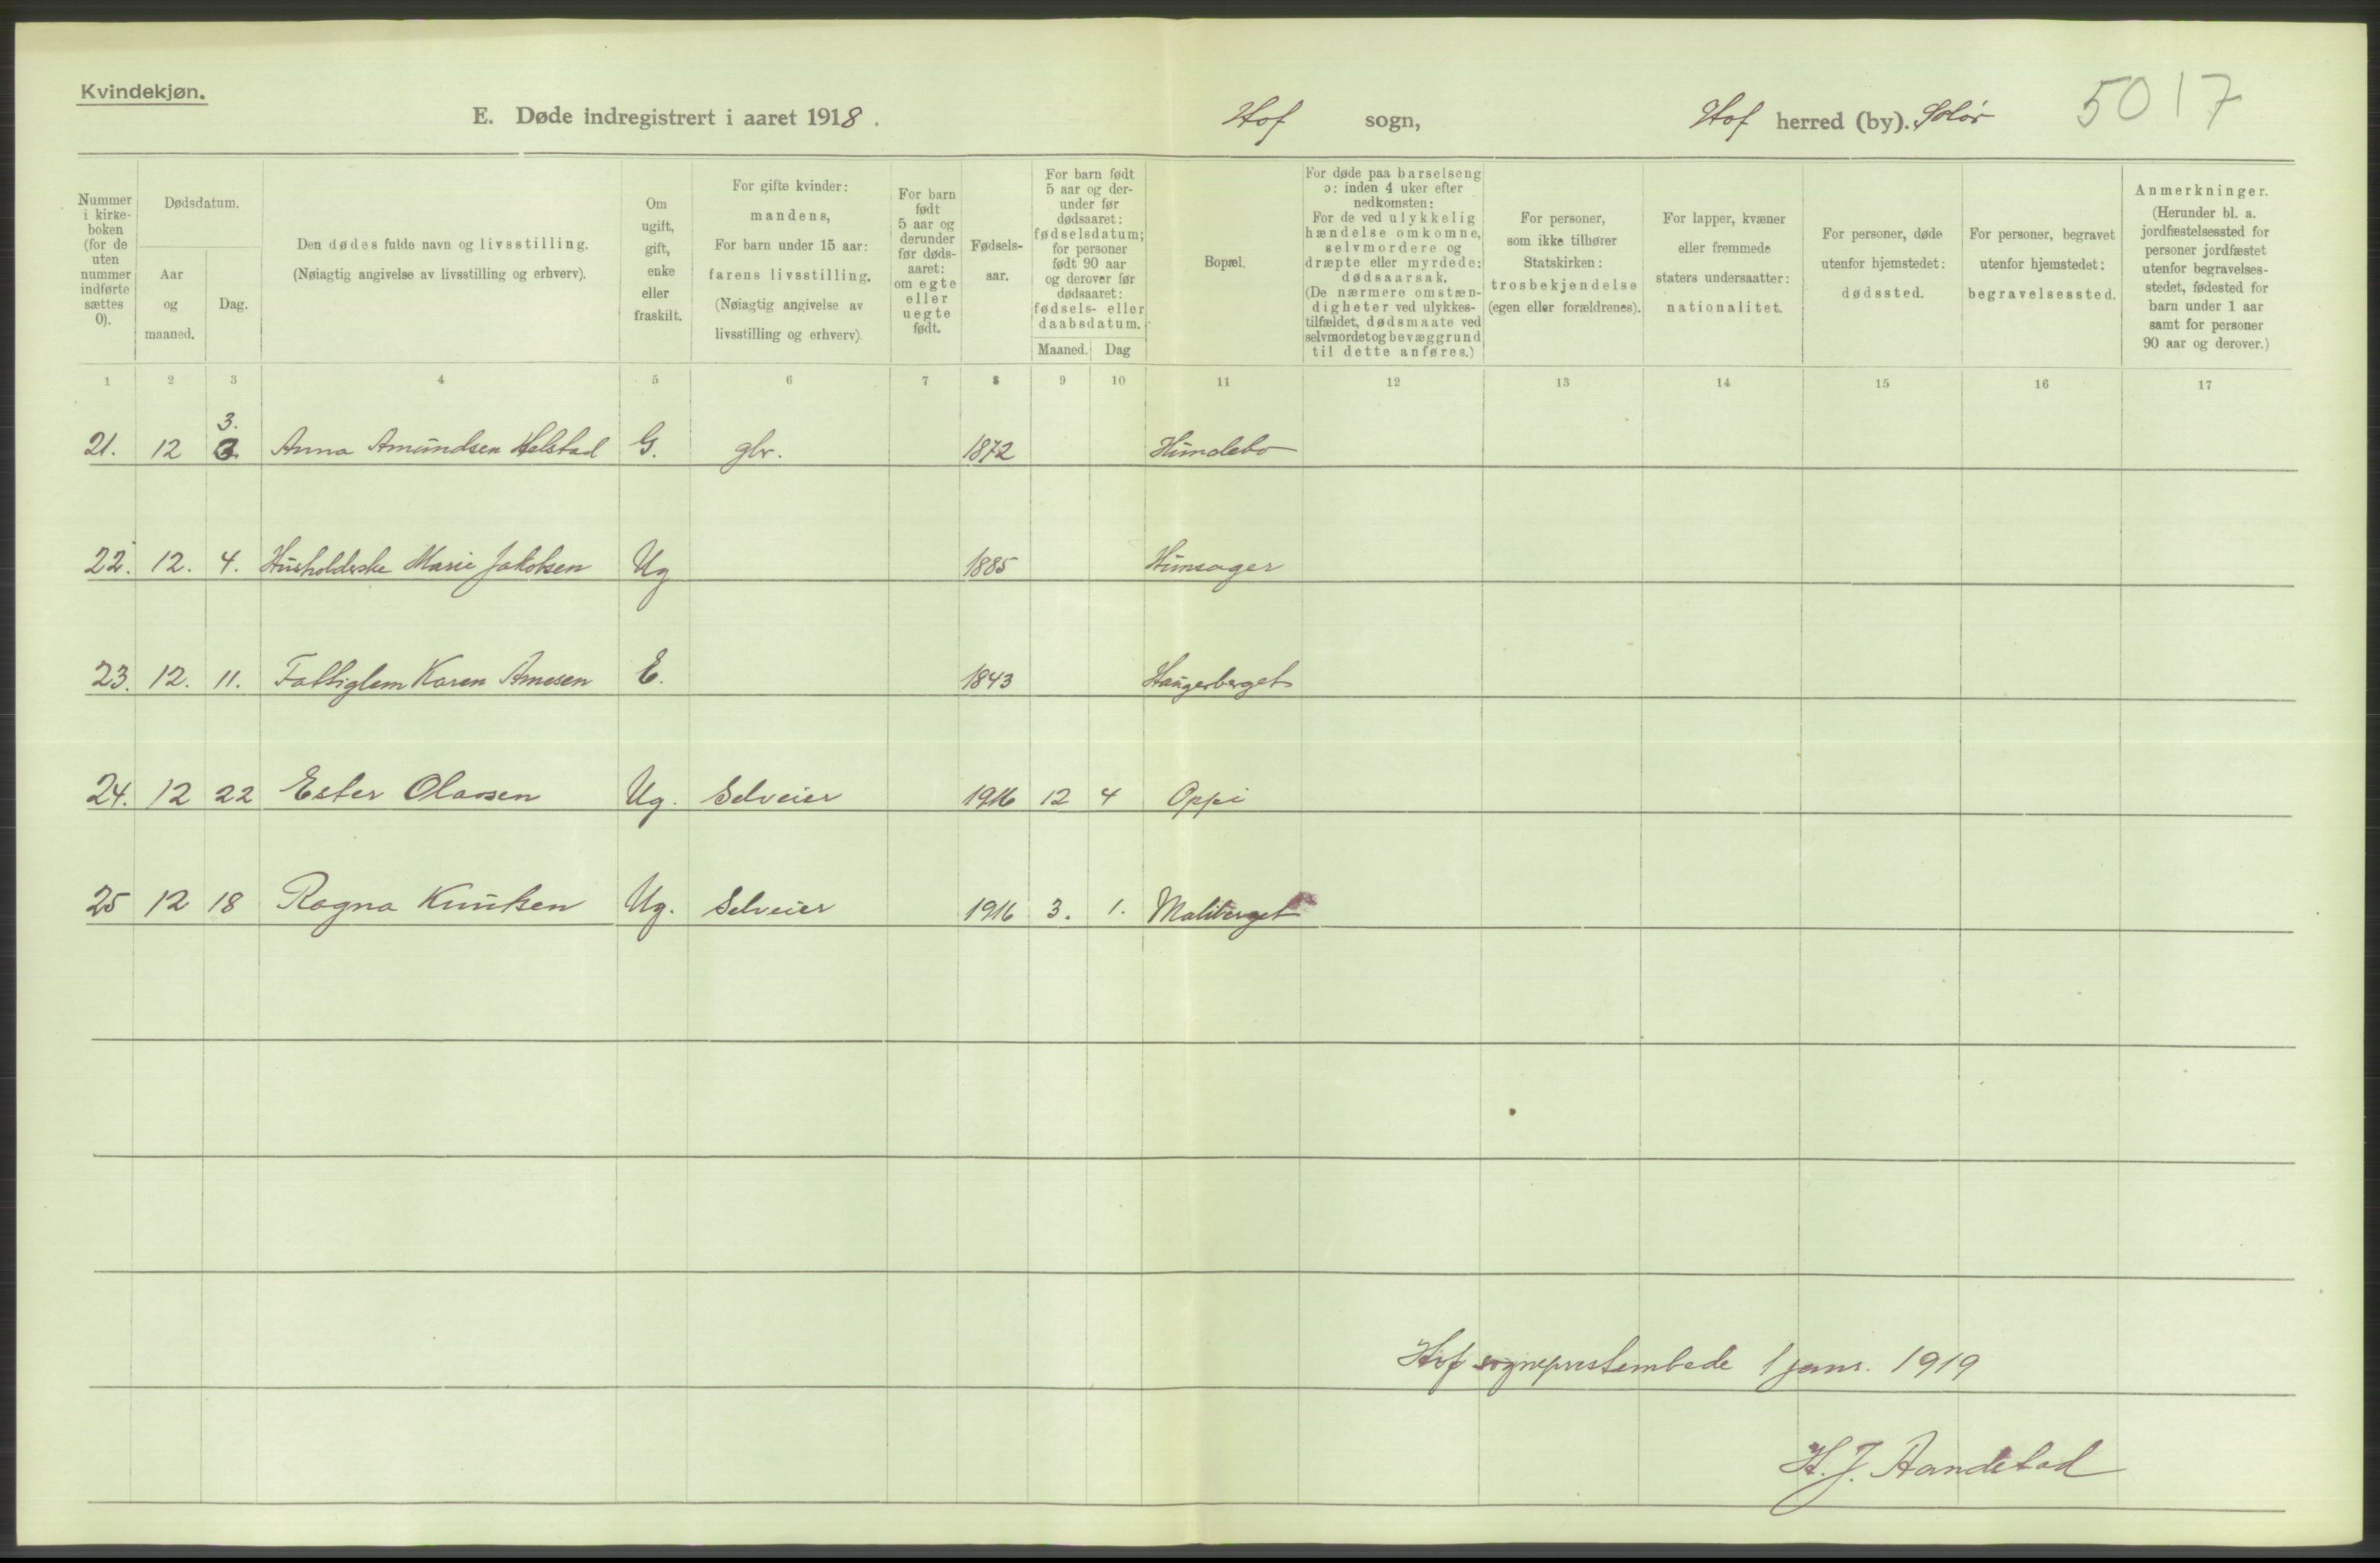 Kvindekjøn.
E. Døde indregistrert i aaret 1918. Hof sogn, Hof herred (by). Solør 5017
Nummer i kirke-boken (for de uten nummer indførte sættes 0).
Dødsdatum.
Aar og maaned.
Dag.
Den dødes fulde navn og livsstilling.
(Nøiagtig angivelse av livsstilling og erhverv).
Om ugift, gift, enke eller fraskilt.
For gifte kvinder: mandens,
For barn under 15 aar: farens livsstilling.
(Nøiagtig angivelse av livsstilling og erhverv).
For barn født 5 aar og derunder før døds-aaret: om egte eller uegte født.
Fødsels-aar.
For barn født 5 aar og der-under før dødsaaret: fødselsdatum; for personer født 90 aar og derover før dødsaaret: fødsels- eller daabsdatum.
Maaned. Dag
Bopæl.
For døde paa barselseng ɔ: inden 4 uker efter nedkomsten:
For de ved ulykkelig hændelse omkomne, selvmordere og dræpte eller myrdede: dødsaarsak.
(De nærmere omstæn-digheter ved ulykkes-tilfældet, dødsmaate ved selvmordet og bevæggrund til dette anføres.)
For personer, som ikke tilhører Statskirken: trosbekjendelse (egen eller forældrenes).
For lapper, kvæner eller fremmede staters undersaatter: nationalitet.
For personer, døde utenfor hjemstedet: dødssted.
For personer, begravet utenfor hjemstedet: begravelsessted.
Anmerkninger.
(Herunder bl. a. jordfæstelsessted for personer jordfæstet utenfor begravelses-stedet, fødested for barn under 1 aar samt for personer 90 aar og derover.)
1 2 3 4 5 6 7 8 9 10 11 12 13 14 15 16 17
3.
21. 12 3. Anna Amundsen Helstad G. gbr. 1872 Hundebo
22. 12. 4. Husholderske Marie Jakobsen Ug 1885 Hunsager
23. 12. 11. Fattiglem Karen Arnesen E. 1843 Haugerberget
24. 12 22 Ester Olassen Ug. Selveier 1916 12 4 Oppi
25 12 18 Ragna Knutsen Ug. Selveier 1916 3. 1. Maliberget
Hof sogneprestembede 1 janr. 1919
H. J. Aandstad